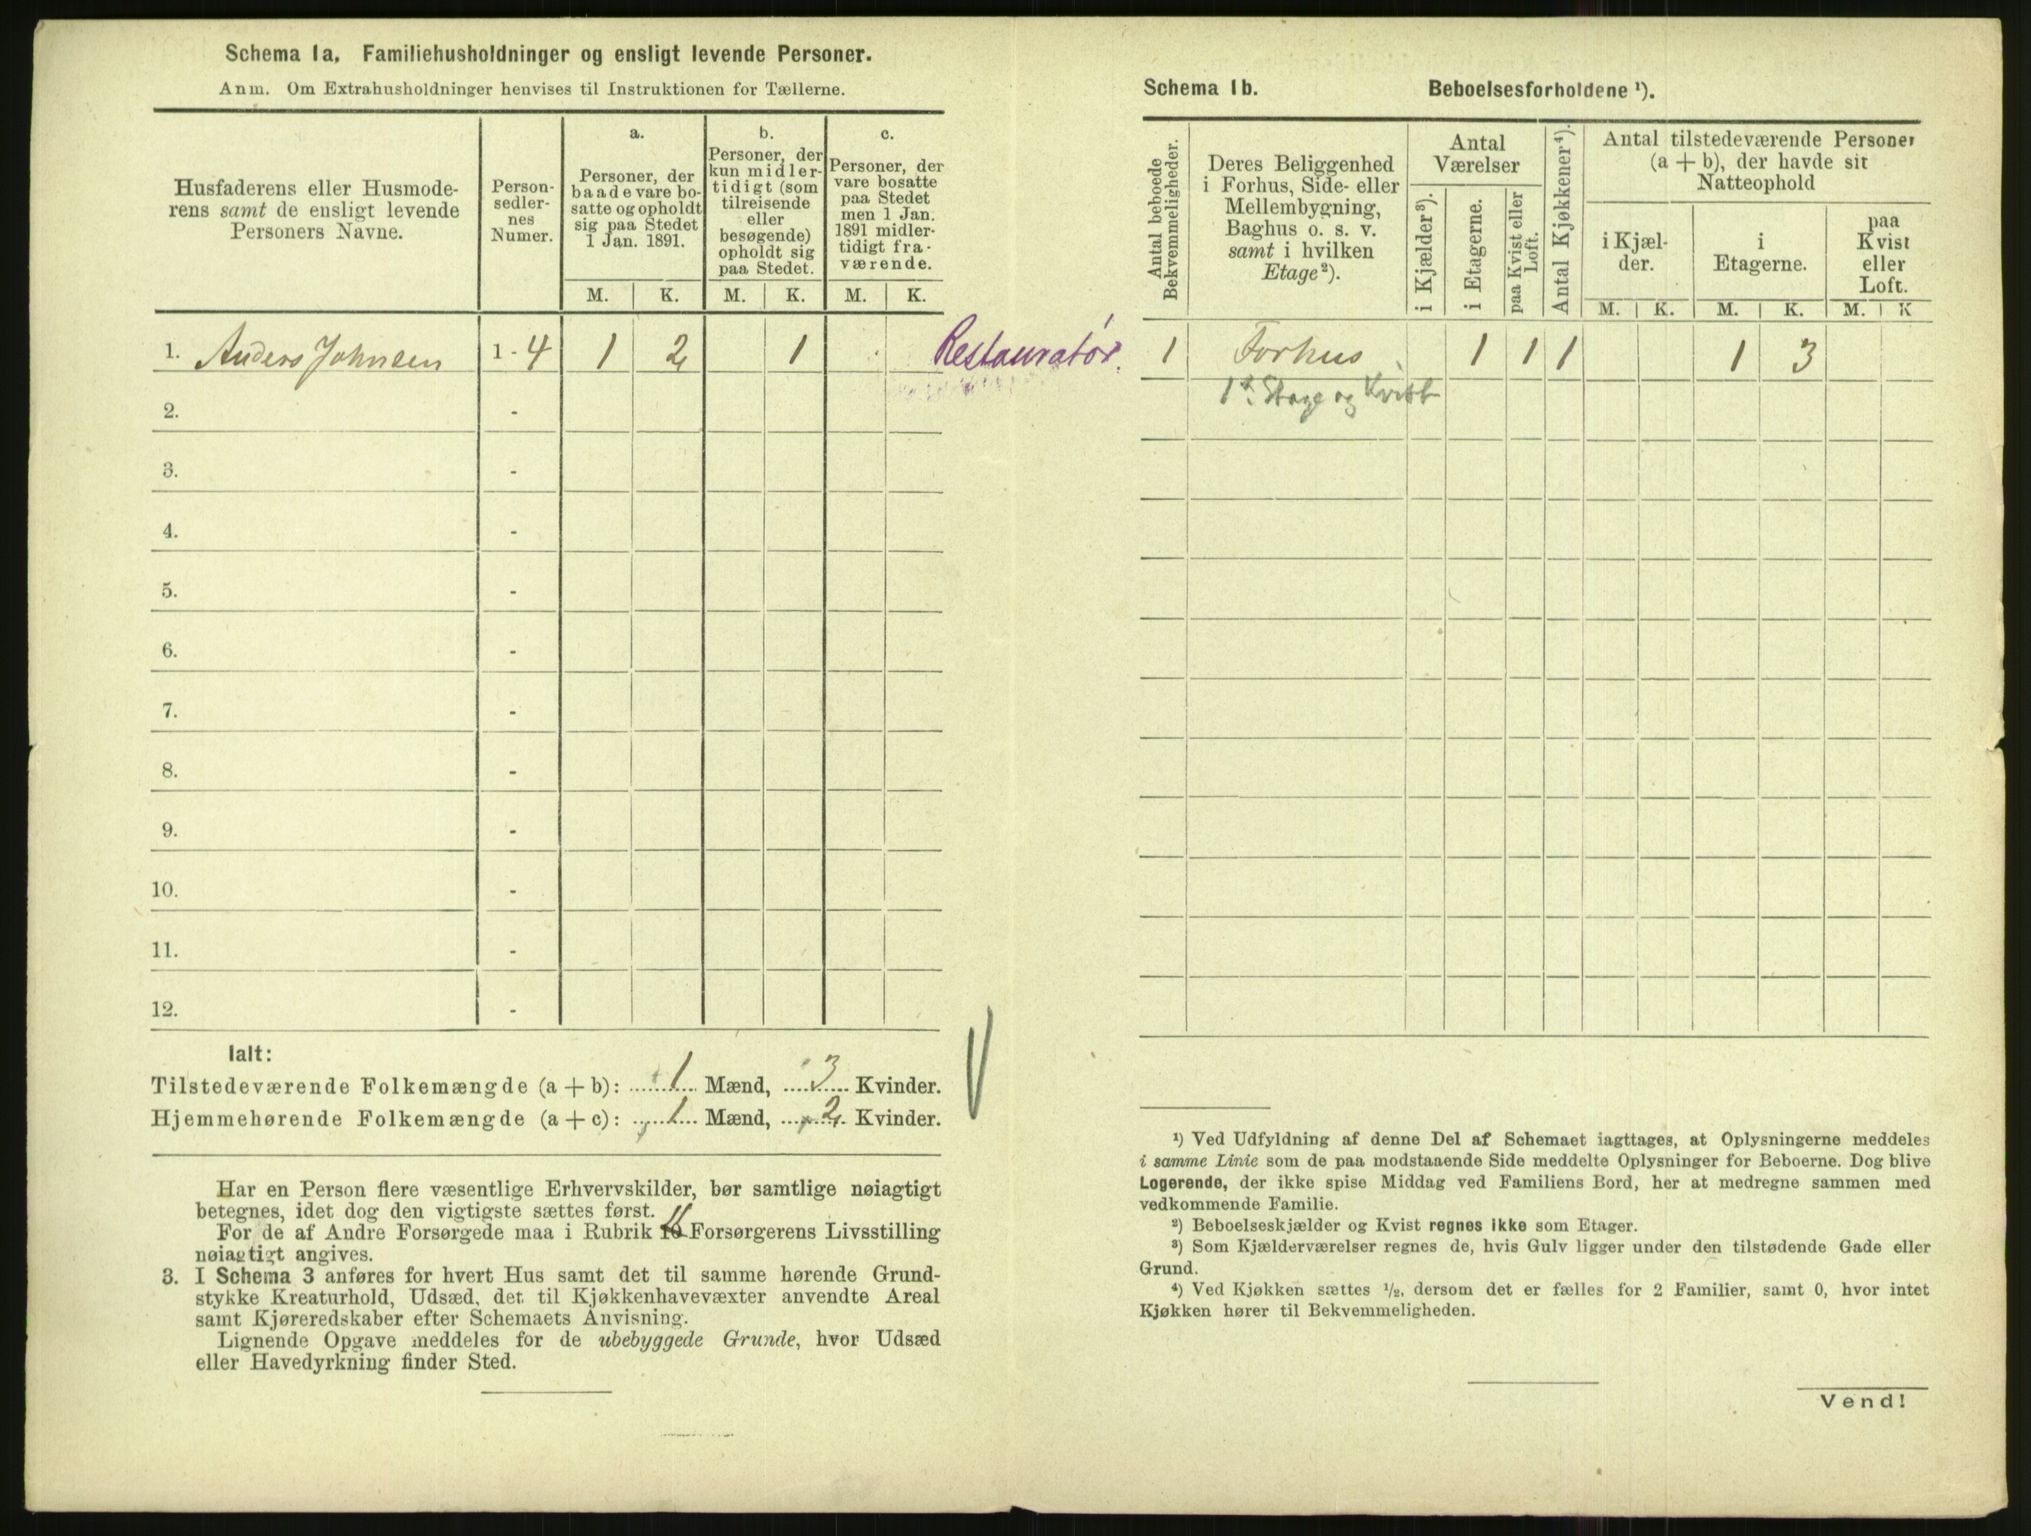 Schema 1a. Familiehusholdninger og ensligt levende Personer.
Anm. Om Extrahusholdninger henvises til Instruktionen for Tællerne.
Husfaderens eller Husmode-
rens samt de ensligt levende
Personers Navne.
Person-
sedler-
nes
Numer.
a.
Personer, der
baade vare bo-
satte og opholdt
sig paa Stedet
1 Jan. 1891.
M. K.
b.
Personer, der
kun midler-
tidigt (som
tilreisende
eller
besøgende)
opholdt sig
paa Stedet.
M. K.
c.
Personer, der
vare bosatte
paa Stedet
men 1 Jan.
1891 midler-
tidigt fra-
værende.
M. K.
1. Anders Johnsen 1 - 4 1 2 1 Restauratør.
2. -
3. -
4. -
5. -
6. -
7. -
8. -
9. -
10. -
11. -
12. -
Ialt:
Tilstedeværende Folkemængde (a + b): 1 Mænd, 3 Kvinder.
Hjemmehørende Folkemængde (a + c): 1 Mænd, 2 Kvinder.
Har en Person flere væsentlige Erhvervskilder, bør samtlige nøiagtigt
betegnes, idet dog den vigtigste sættes først.
For de af Andre Forsørgede maa i Rubrik 11 Forsørgerens Livsstilling
nøiagtigt angives.
3. I Schema 3 anføres for hvert Hus samt det til samme hørende Grund-
stykke Kreaturhold, Udsæd, det til Kjøkkenhavevæxter anvendte Areal
samt Kjøreredskaber efter Schemaets Anvisning.
Lignende Opgave meddeles for de ubebyggede Grunde, hvor Udsæd
eller Havedyrkning finder Sted.
Schema 1b. Beboelsesforholdene ¹).
Antal beboede
Bekvemmeligheder.
Deres Beliggenhed
i Forhus, Side- eller
Mellembygning,
Baghus o. s. v.
samt i hvilken
Etage²).
Antal
Værelser
i Kjælder³).
i Etagerne.
paa Kvist eller
Loft.
Antal Kjøkkener⁴).
Antal tilstedeværende Personer
(a + b), der havde sit
Natteophold
i Kjæl-
der.
M. K.
i
Etagerne.
M. K.
paa
Kvist
eller
Loft.
M. K
1 Forhus 1 1 1 1 3
1st. Etage og Kvist
¹) Ved Udfyldning af denne Del af Schemaet iagttages, at Oplysningerne meddeles
i samme Linie som de paa modstaaende Side meddelte Oplysninger for Beboerne. Dog blive
Logerende, der ikke spise Middag ved Familiens Bord, her at medregne sammen med
vedkommende Familie.
²) Beboelseskjælder og Kvist regnes ikke som Etager.
³) Som Kjælderværelser regnes de, hvis Gulv ligger under den tilstødende Gade eller
Grund.
⁴) Ved Kjøkken sættes ½, dersom det er fælles for 2 Familier, samt 0, hvor intet
Kjøkken hører til Bekvemmeligheden.
Vend!